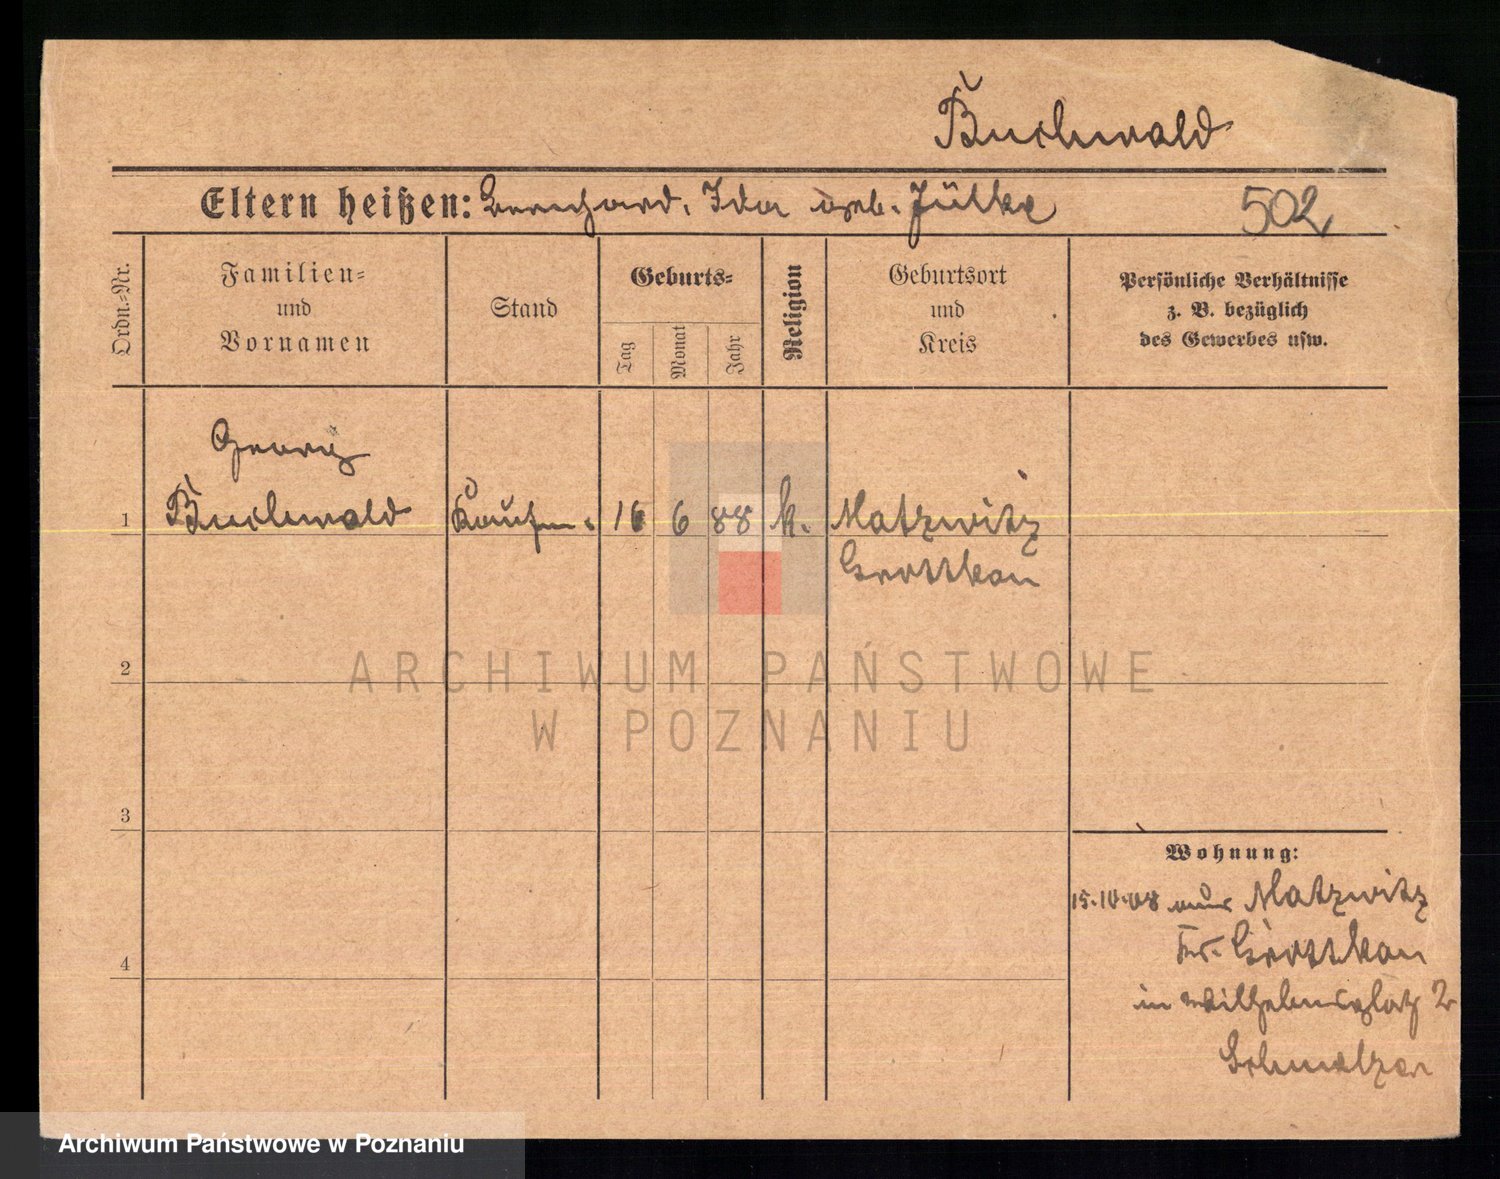 Buchwald
Eltern heißen: Bernhard. Ida geb. Jüttke
502
Ordn.-Nr.
Familien- und Vornamen
Stand
Geburts-
Tag
Monat
Jahr
Religion
Geburtsort und Kreis
Persönliche Verhältnisse z. B. bezüglich des Gewerbes usw.
Georg
1 Buchwald Kaufm. 16 6 88 k. Matzwitz
Grottkau
2
ARCHIWUM PAŃSTWOWE
W POZNANIU
3
Wohnung:
15.10.08 aus Matzwitz
Kr. Grottkau
4
in Wilhelmsplatz 2
Schmelzer
Archiwum Państwowe w Poznaniu